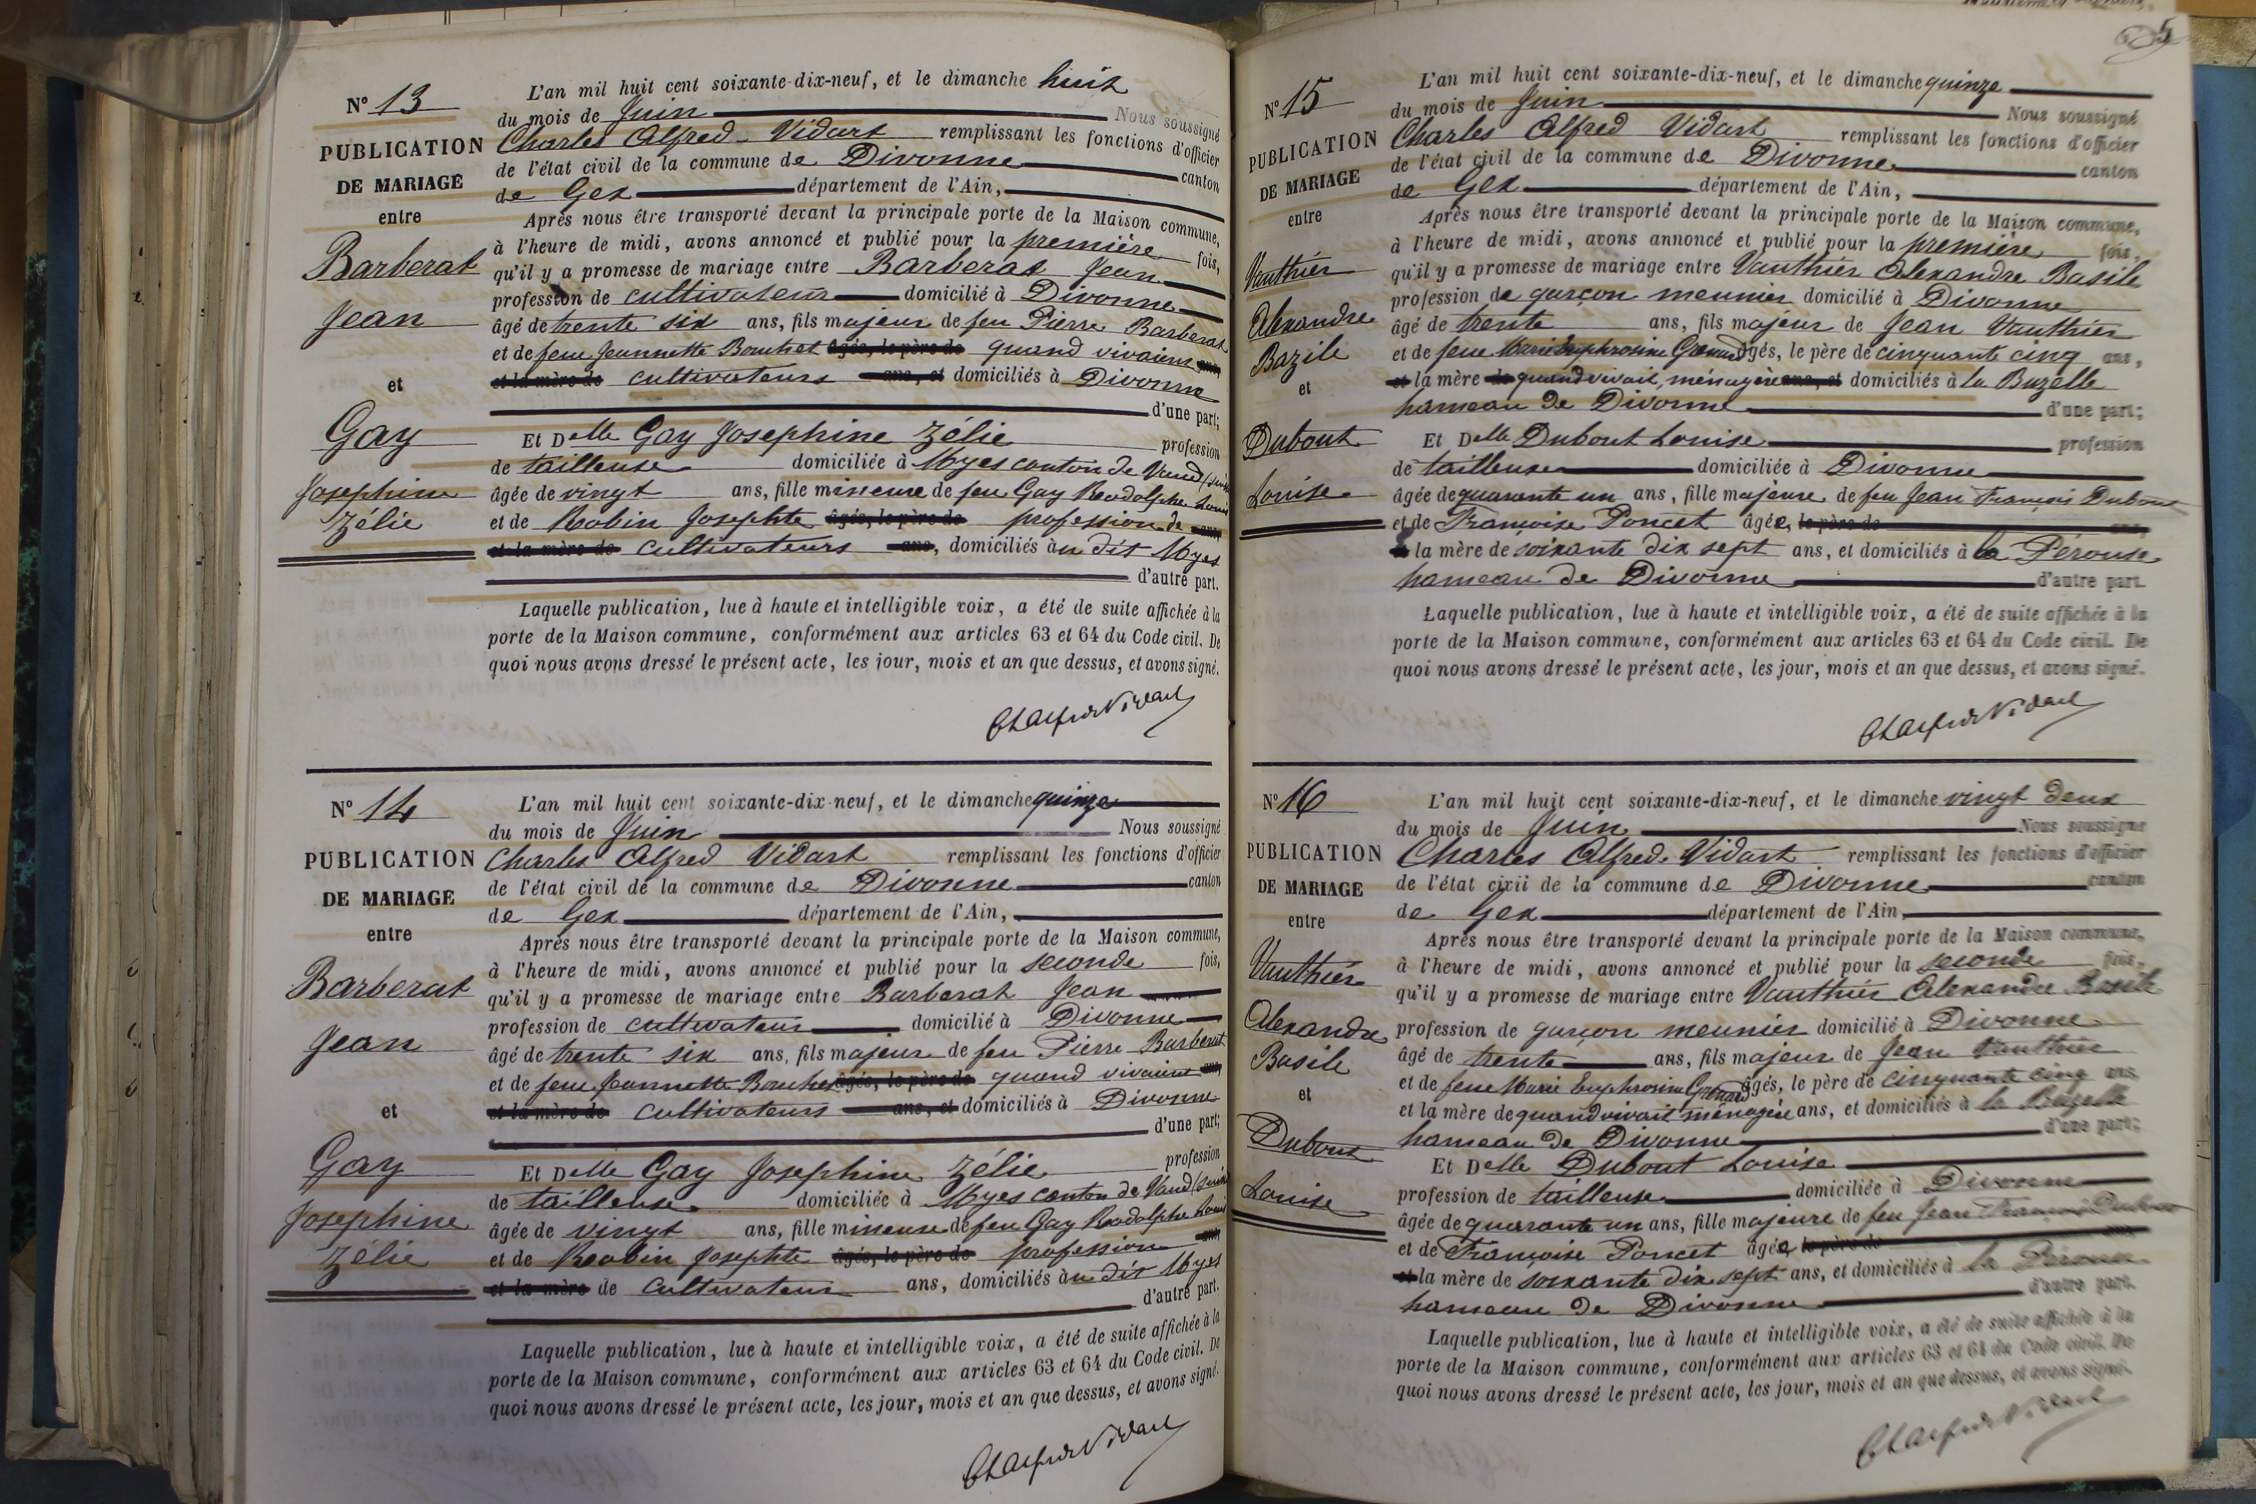 N° 13
PUBLICATION
DE MARIAGE
entre
Barberat
Jean
et
Gay
Josephine
Zélie
L'an mil huit cent soixante-dix-neuf, et le dimanche huit
du mois de Juin Nous soussigné
Charles Alfred Vidart remplissant les fonctions d'officier
de l'état civil de la commune de Divonne canton
de Gex département de l'Ain,
Après nous être transporté devant la principale porte de la Maison commune,
à l'heure de midi, avons annoncé et publié pour la première fois,
qu'il y a promesse de mariage entre Barberat Jean
profession de cultivateur domicilié à Divonne
âgé de trente six ans, fils majeur de feu Pierre Barberat
et de feue Jeannette Bouchet âgés, le père de quand vivaient ans,
et la mère de cultivateurs ans, et domiciliés à Divonne
d'une part;
Et Delle Gay Josephine Zélie profession
de tailleuse domiciliée à Myes canton de Vaud (Suisse
âgée de vingt ans, fille mineure de feu Gay Rodolphe Louis
et de Robin Josephte âgés, le père de profession de ans,
et la mère de cultivateurs ans, domiciliés àu dit Myes
d'autre part.
Laquelle publication, lue à haute et intelligible voix, a été de suite affichée à la
porte de la Maison commune, conformément aux articles 63 et 64 du Code civil. De
quoi nous avons dressé le présent acte, les jour, mois et an que dessus, et avons signé.
ChAlfredVidart
N° 14
PUBLICATION
DE MARIAGE
entre
Barberat
Jean
et
Gay
Josephine
Zélie
L'an mil huit cent soixante-dix-neuf, et le dimanche quinze
du mois de Juin Nous soussigné
Charles Alfred Vidart remplissant les fonctions d'officier
de l'état civil de la commune de Divonne canton
de Gex département de l'Ain,
Après nous être transporté devant la principale porte de la Maison commune,
à l'heure de midi, avons annoncé et publié pour la seconde fois,
qu'il y a promesse de mariage entre Barberat Jean
profession de cultivateur domicilié à Divonne
âgé de trente six ans, fils majeur de feu Pierre Barberat
et de feue Jeannette Bouchet âgés, le père de quand vivaient ans,
et la mère de cultivateurs ans, et domiciliés à Divonne
d'une part;
Et Delle Gay Josephine Zélie profession
de tailleuse domiciliée à Myes canton de Vaud (Suisse
âgée de vingt ans, fille mineure de feu Gay Rodolphe Louis
et de Robin Josephte âgés, le père de profession ans,
et la mère de cultivateurs ans, domiciliés àu dit Myes
d'autre part.
Laquelle publication, lue à haute et intelligible voix, a été de suite affichée à la
porte de la Maison commune, conformément aux articles 63 et 64 du Code civil. De
quoi nous avons dressé le présent acte, les jour, mois et an que dessus, et avons signé.
ChAlfredVidart
5
N° 15
PUBLICATION
DE MARIAGE
entre
Vauthier
Alexandre
Bazile
et
Dubout
Louise
L'an mil huit cent soixante-dix-neuf, et le dimanche quinze
du mois de Juin Nous soussigné
Charles Alfred Vidart remplissant les fonctions d'officier
de l'état civil de la commune de Divonne canton
de Gex département de l'Ain,
Après nous être transporté devant la principale porte de la Maison commune,
à l'heure de midi, avons annoncé et publié pour la première fois,
qu'il y a promesse de mariage entre Vauthier Alexandre Basile
profession de garçon meunier domicilié à Divonne
âgé de trente ans, fils majeur de Jean Vauthier
et de feue Marie Euphrosine âgés, le père de cinquante cinq ans,
et la mère de quand vivait, ménagère ans, et domiciliés à la Buzelle
hameau de Divonne d'une part;
Et Delle Dubout Louise profession
de tailleuse domiciliée à Divonne
âgée de quarante un ans, fille majeure de feu Jean François Dubout
et de Françoise Poncet âgée, le père de ans,
et la mère de soixante dix sept ans, et domiciliés à la Pérouse
hameau de Divonne d'autre part.
Laquelle publication, lue à haute et intelligible voix, a été de suite affichée à la
porte de la Maison commune, conformément aux articles 63 et 64 du Code civil. De
quoi nous avons dressé le présent acte, les jour, mois et an que dessus, et avons signé.
ChAlfredVidart
N° 16
PUBLICATION
DE MARIAGE
entre
Vauthier
Alexandre
Basile
et
Dubout
Louise
L'an mil huit cent soixante-dix-neuf, et le dimanche vingt deux
du mois de Juin Nous soussigné
Charles Alfred Vidart remplissant les fonctions d'officier
de l'état civil de la commune de Divonne canton
de Gex département de l'Ain,
Après nous être transporté devant la principale porte de la Maison commune,
à l'heure de midi, avons annoncé et publié pour la seconde fois,
qu'il y a promesse de mariage entre Vauthier Alexandre Basile
profession de garçon meunier domicilié à Divonne
âgé de trente ans, fils majeur de Jean Vauthier
et de feue Marie Euphrosine âgés, le père de cinquante cinq ans,
et la mère de quand vivait ménagère ans, et domiciliés à la Buzelle
hameau de Divonne d'une part;
Et Delle Dubout Louise
profession de tailleuse domiciliée à Divonne
âgée de quarante un ans, fille majeure de feu Jean François Dubout
et de Françoise Poncet âgée, le père de ans
et la mère de soixante dix sept ans, et domiciliés à la Pérouse
hameau de Divonne d'autre part.
Laquelle publication, lue à haute et intelligible voix, a été de suite affichée à la
porte de la Maison commune, conformément aux articles 63 et 64 du Code civil. De
quoi nous avons dressé le présent acte, les jour, mois et an que dessus, et avons signé.
ChAlfredVidart